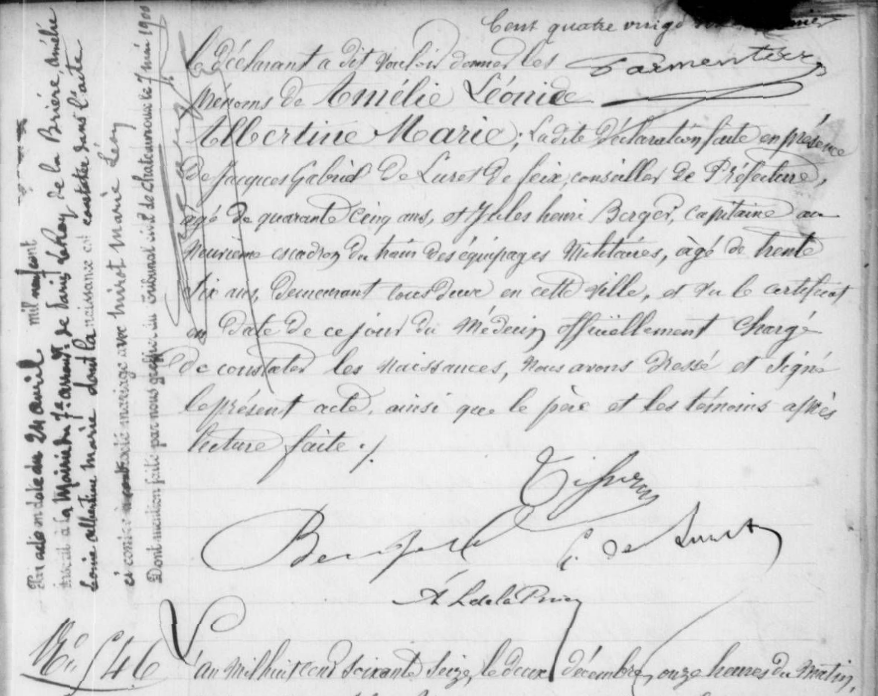 Cent quatre vingt
Le déclarant a dit vouloir donner les
Parmentier
prénoms de Amélie Léonie
Albertine Marie; Ladite déclaration faite en présence
de Jacques Gabriel De Luret de feix, conseiller de Préfecture,
âgé de quarante cinq ans, et Jules henri Berger, capitaine au
neuvième escadron du train des équipages Militaires, âgé de trente
six ans, demeurant tous deux en cette ville, et vu le certificat
en date de ce jour du Médecin officiellement chargé
de constater les naissances, nous avons dressé et signé
le présent acte, ainsi que le père et les témoins après
lecture faite ./.
Berger
G. de Luret
A L de la Brière
No 546
L'an Mil huit cent soixante seize, le deux décembre, onze heures du Matin,
acte en date du 24 avril mil neuf cent
inscrit à la Mairie du 7e arrondt de Paris LeRoy de la Brière, Amélie
Léonie Albertine Marie dont la naissance est constatée dans l'acte
ci contre a contracté mariage avec Marie Léon
Dont mention faite par nous greffier du Tribunal civil de Chateauroux le 7 mai 1900